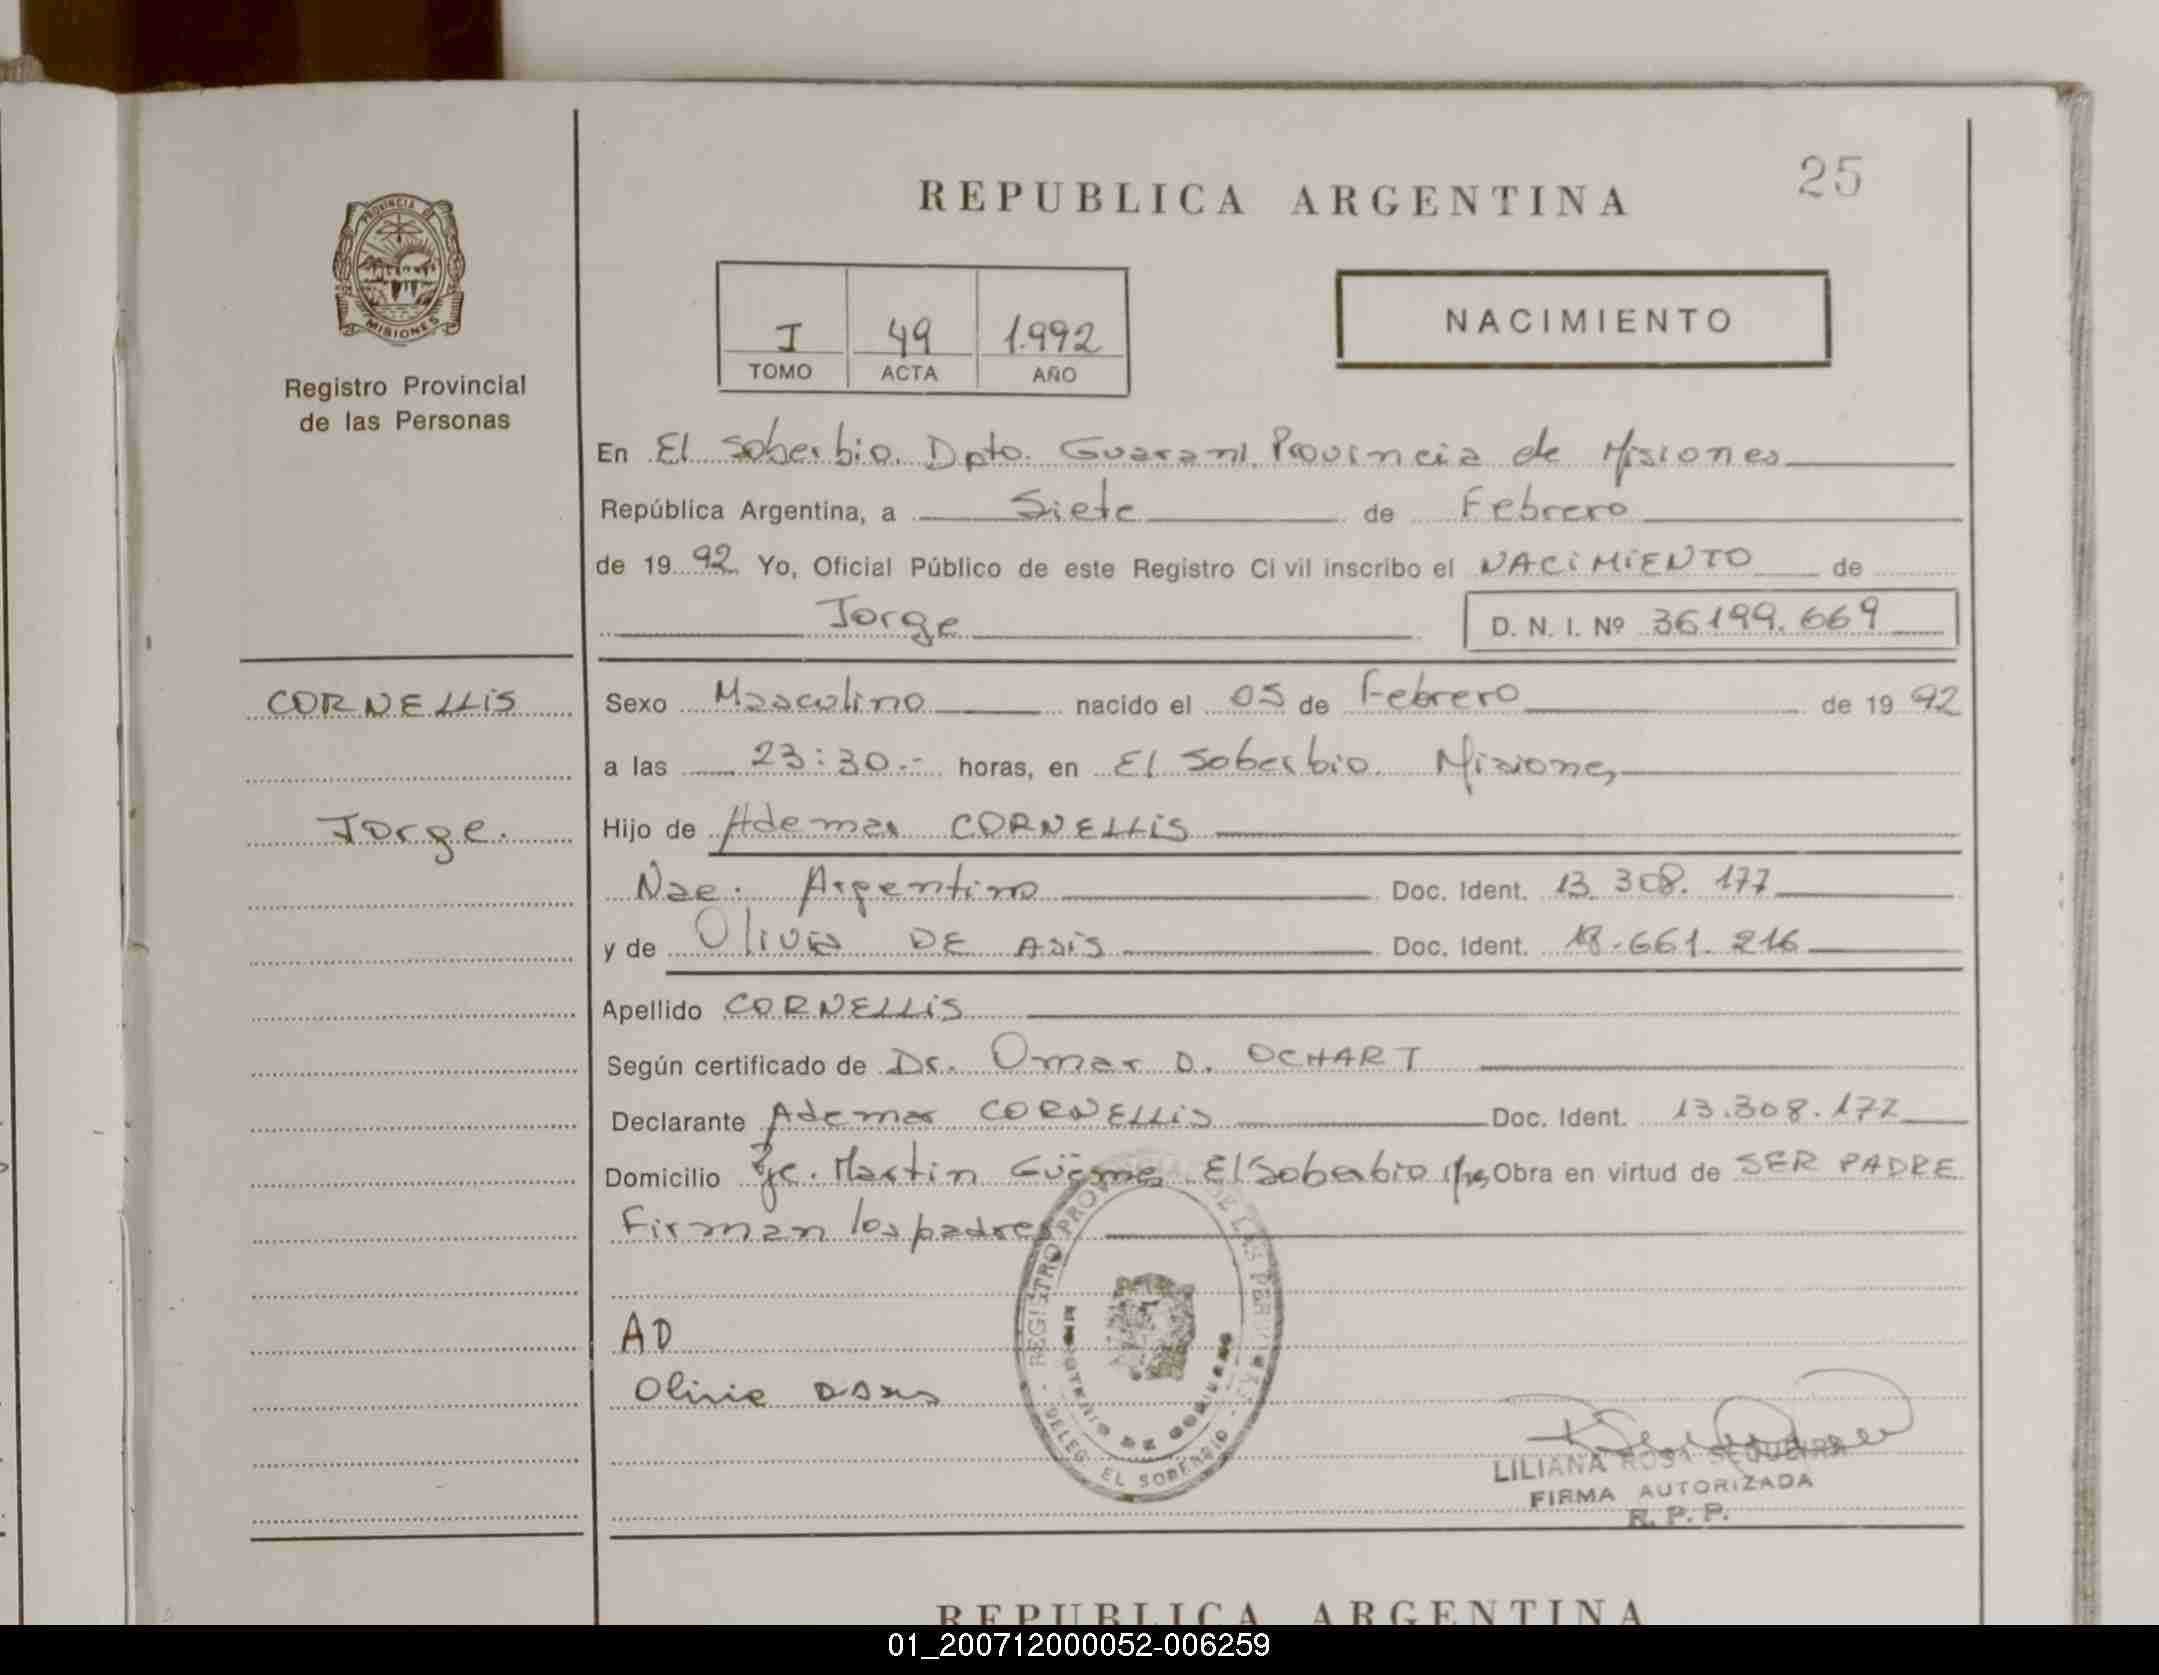 25
REPUBLICA ARGENTINA
PROVINCIA DE
MISIONES
Registro Provincial
de las Personas
I 49 1.992
TOMO ACTA AÑO
NACIMIENTO
En El Soberbio. Dpto. Guarani. Provincia de Misiones
República Argentina, a Siete de Febrero
de 19 92 Yo, Oficial Público de este Registro Civil inscribo el NACIMIENTO de
Jorge D. N. I. Nº 36.199.669
CORNELLIS
Jorge.
Sexo Masculino nacido el 05 de Febrero de 19 92
a las 23:30.- horas, en El Soberbio Misiones
Hijo de Ademar CORNELLIS
Nac. Argentino Doc. Ident. 13.308.177
y de Olivia DE ASIS Doc. Ident. 18.661.216
Apellido CORNELLIS
Según certificado de Dr. Omar D. OCHART
Declarante Ademar CORNELLIS Doc. Ident. 13.308.177
Domicilio Martin Güemes El Soberbio Obra en virtud de SER PADRE
Firman los padres
AD
Olivia
REGISTRO PROVINCIAL DE LAS PERSONAS
MINISTERIO DE GOBIERNO
DELEG. EL SOBERBIO
LILIANA ROSA SEQUEIRA
FIRMA AUTORIZADA
R. P. P.
REPUBLICA ARGENTINA
01_200712000052-006259